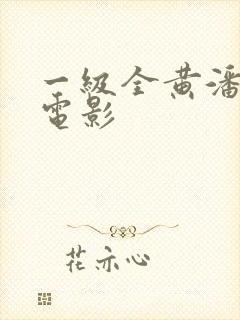 一級全黄潘
電影
花亦心